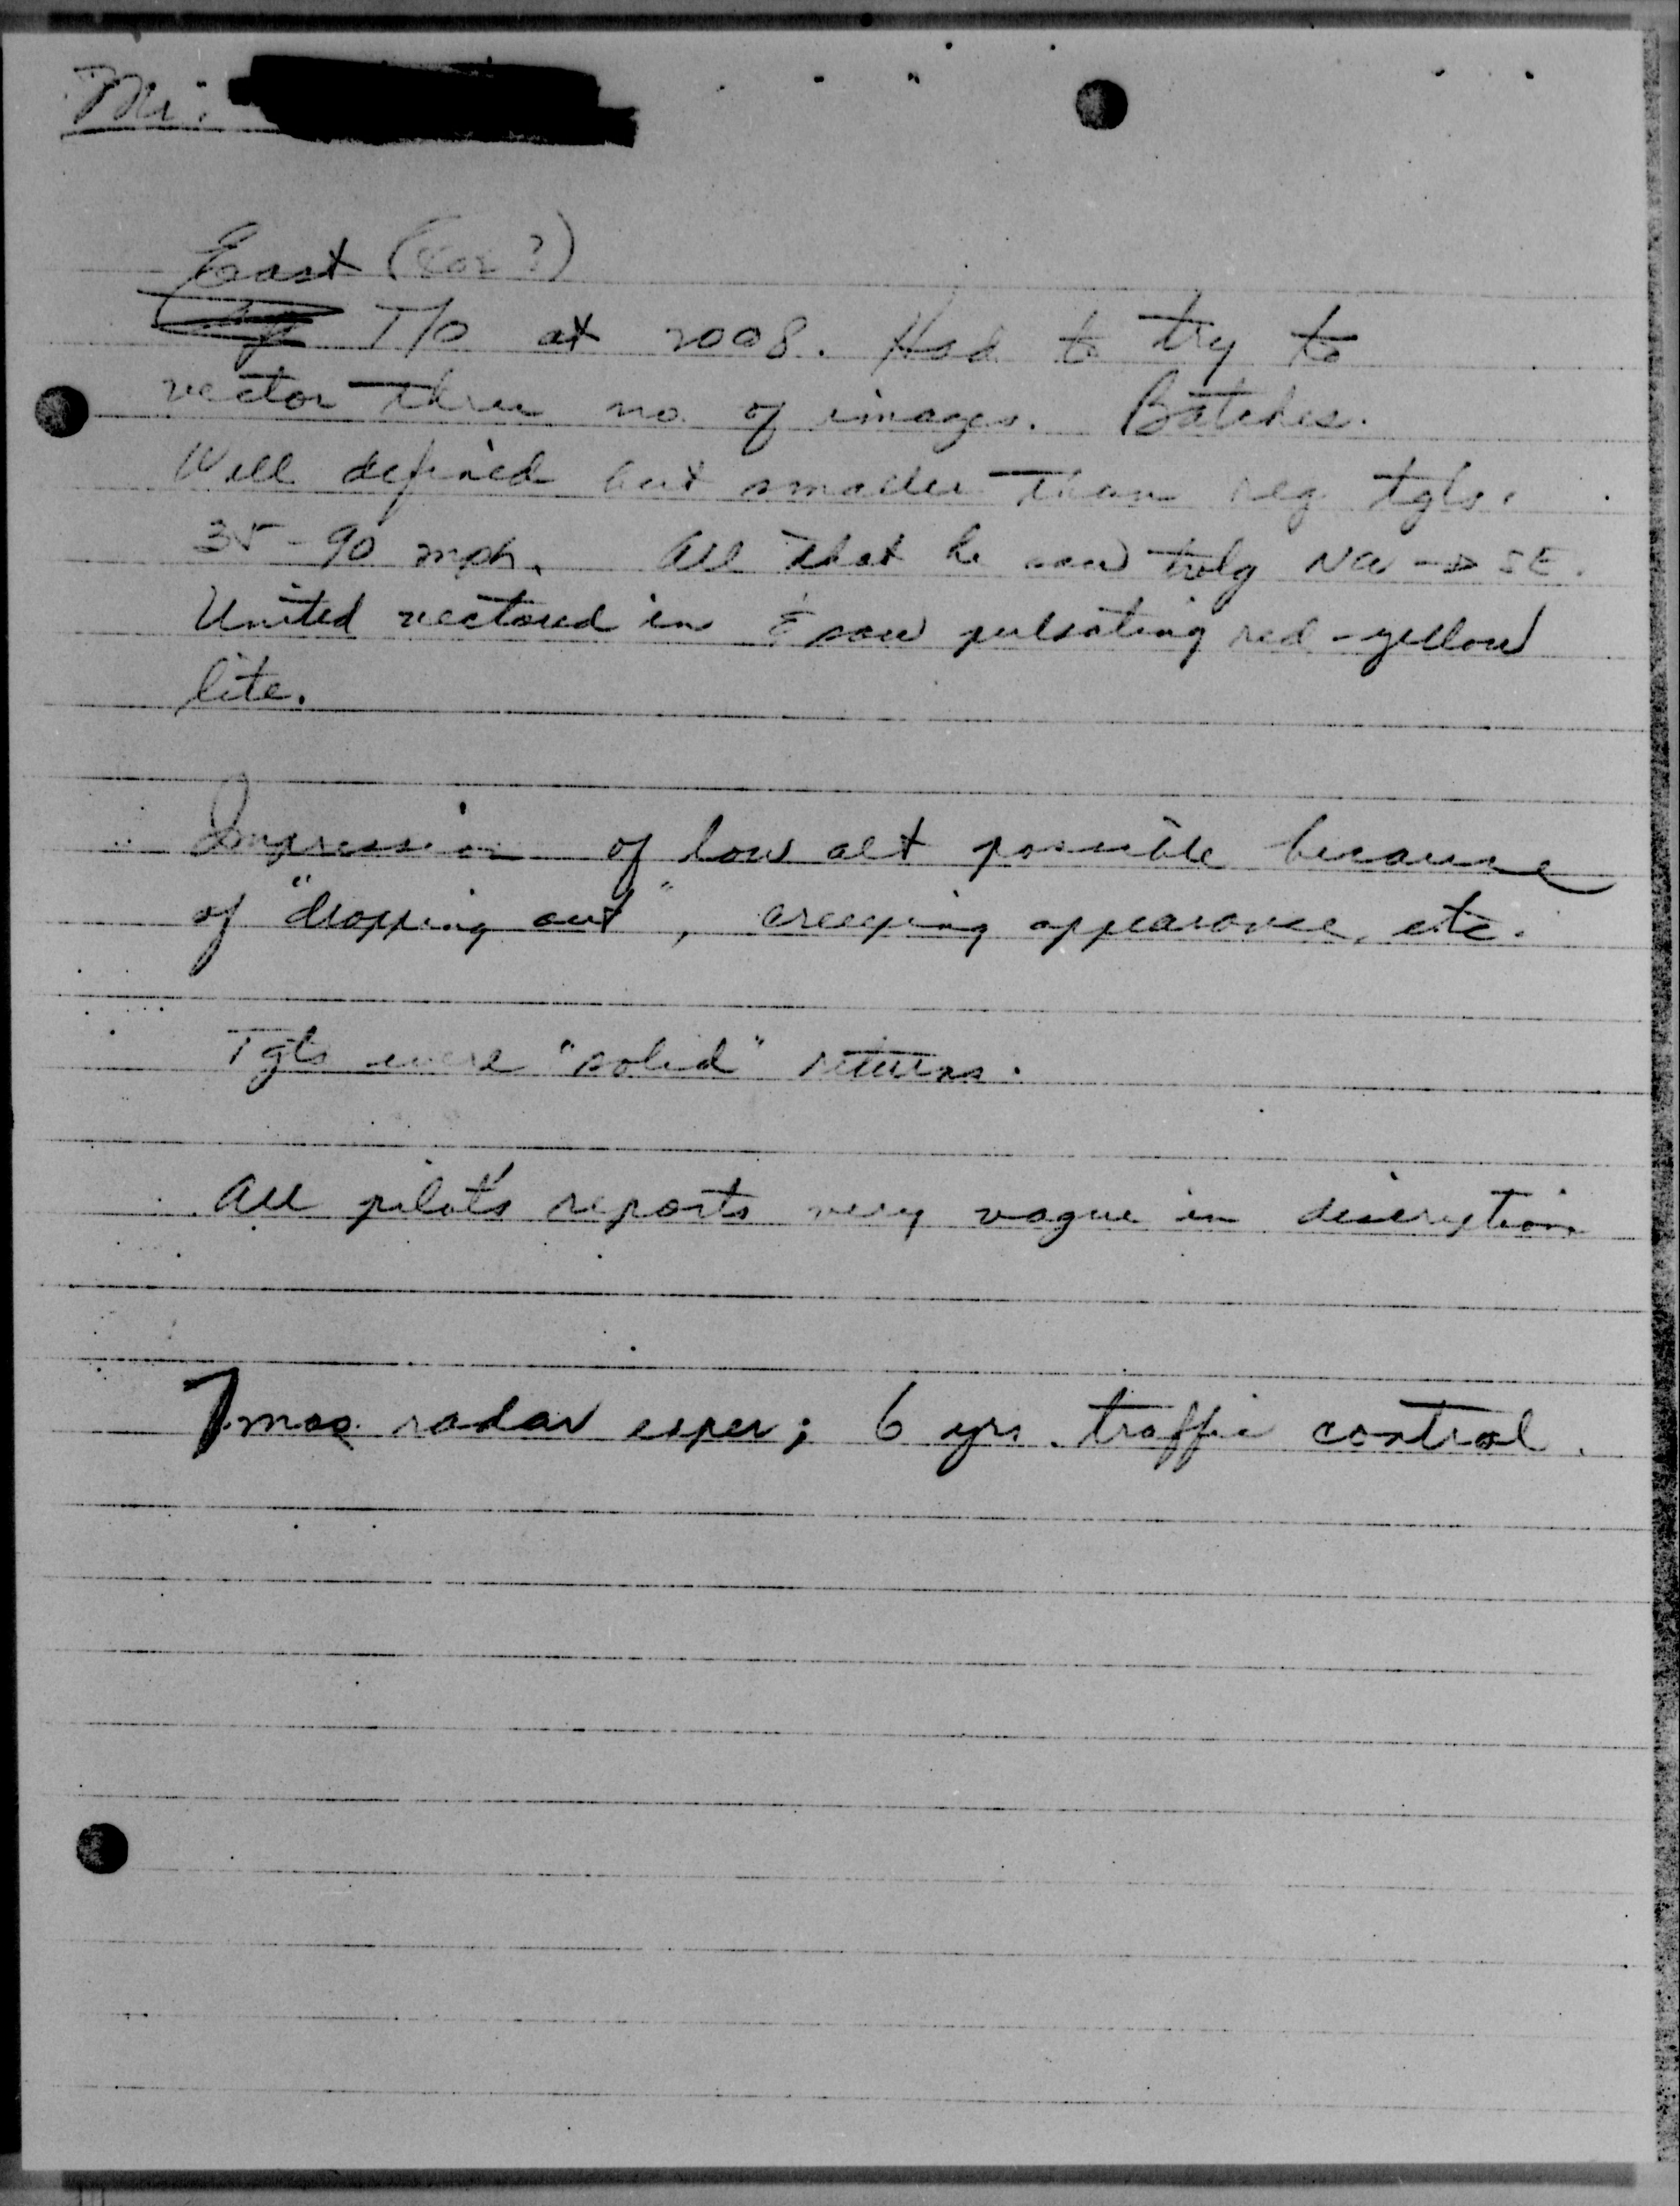 Mr.
East
T/O at 2008. Had to try to
vector thru no. of images. Batches.
Well defined but smaller than reg tgts.
35-90 mph. All that he saw trvlg NW → SE.
United vectored in & saw pulsating red-yellow
lite.
Impression of low alt possible because
of "dropping out", creeping appearance, etc.
Tgts were "solid" returns.
All pilot's reports very vague in discription
7 mos radar exper; 6 yrs. traffic control.